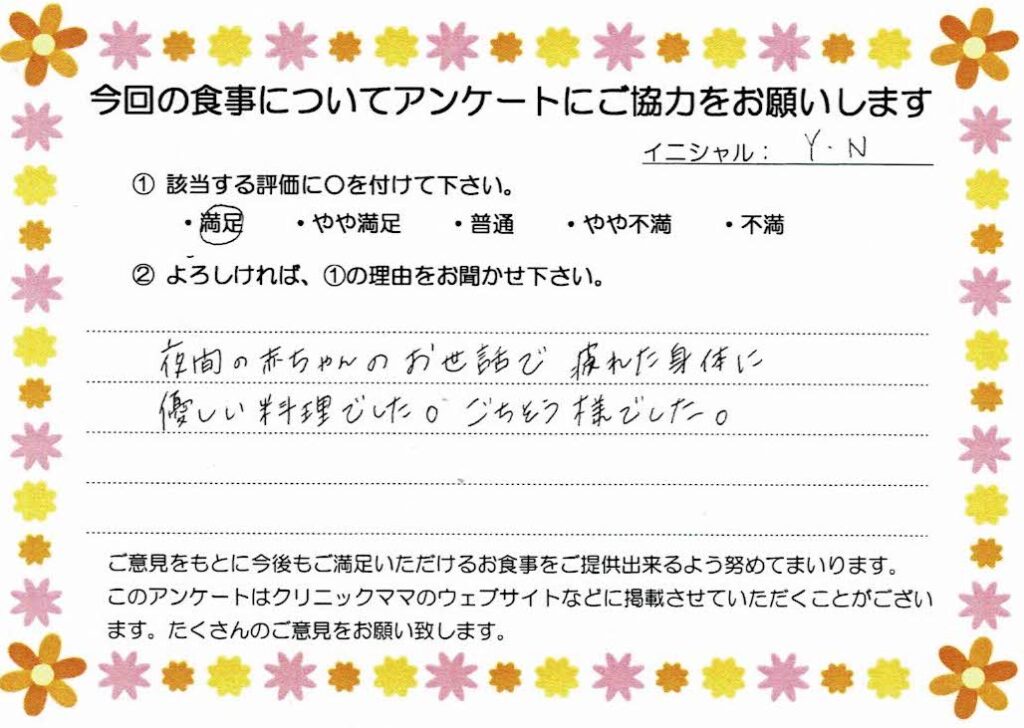 今回の食事についてアンケートにご協力をお願いします
イニシャル： Y.N
① 該当する評価に〇を付けて下さい。
・満足 ・やや満足 ・普通 ・やや不満 ・不満
② よろしければ、①の理由をお聞かせ下さい。
夜間の赤ちゃんのお世話で 疲れた身体に
優しい料理でした。ごちそう様でした。
ご意見をもとに今後もご満足いただけるお食事をご提供出来るよう努めてまいります。
このアンケートはクリニックママのウェブサイトなどに掲載させていただくことがござい
ます。たくさんのご意見をお願い致します。